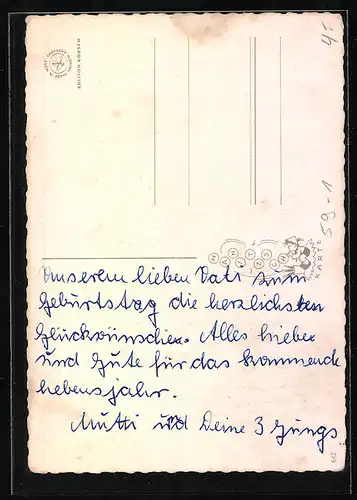 Unserem lieben Vati zum
Geburtstag die herzlichsten
Glückwünsche. Alles Liebe
und Gute für das kommende
Lebensjahr.
Mutti und Deine 3 Jungs
EDITION KORSCH
KARTE
4,-
59-1